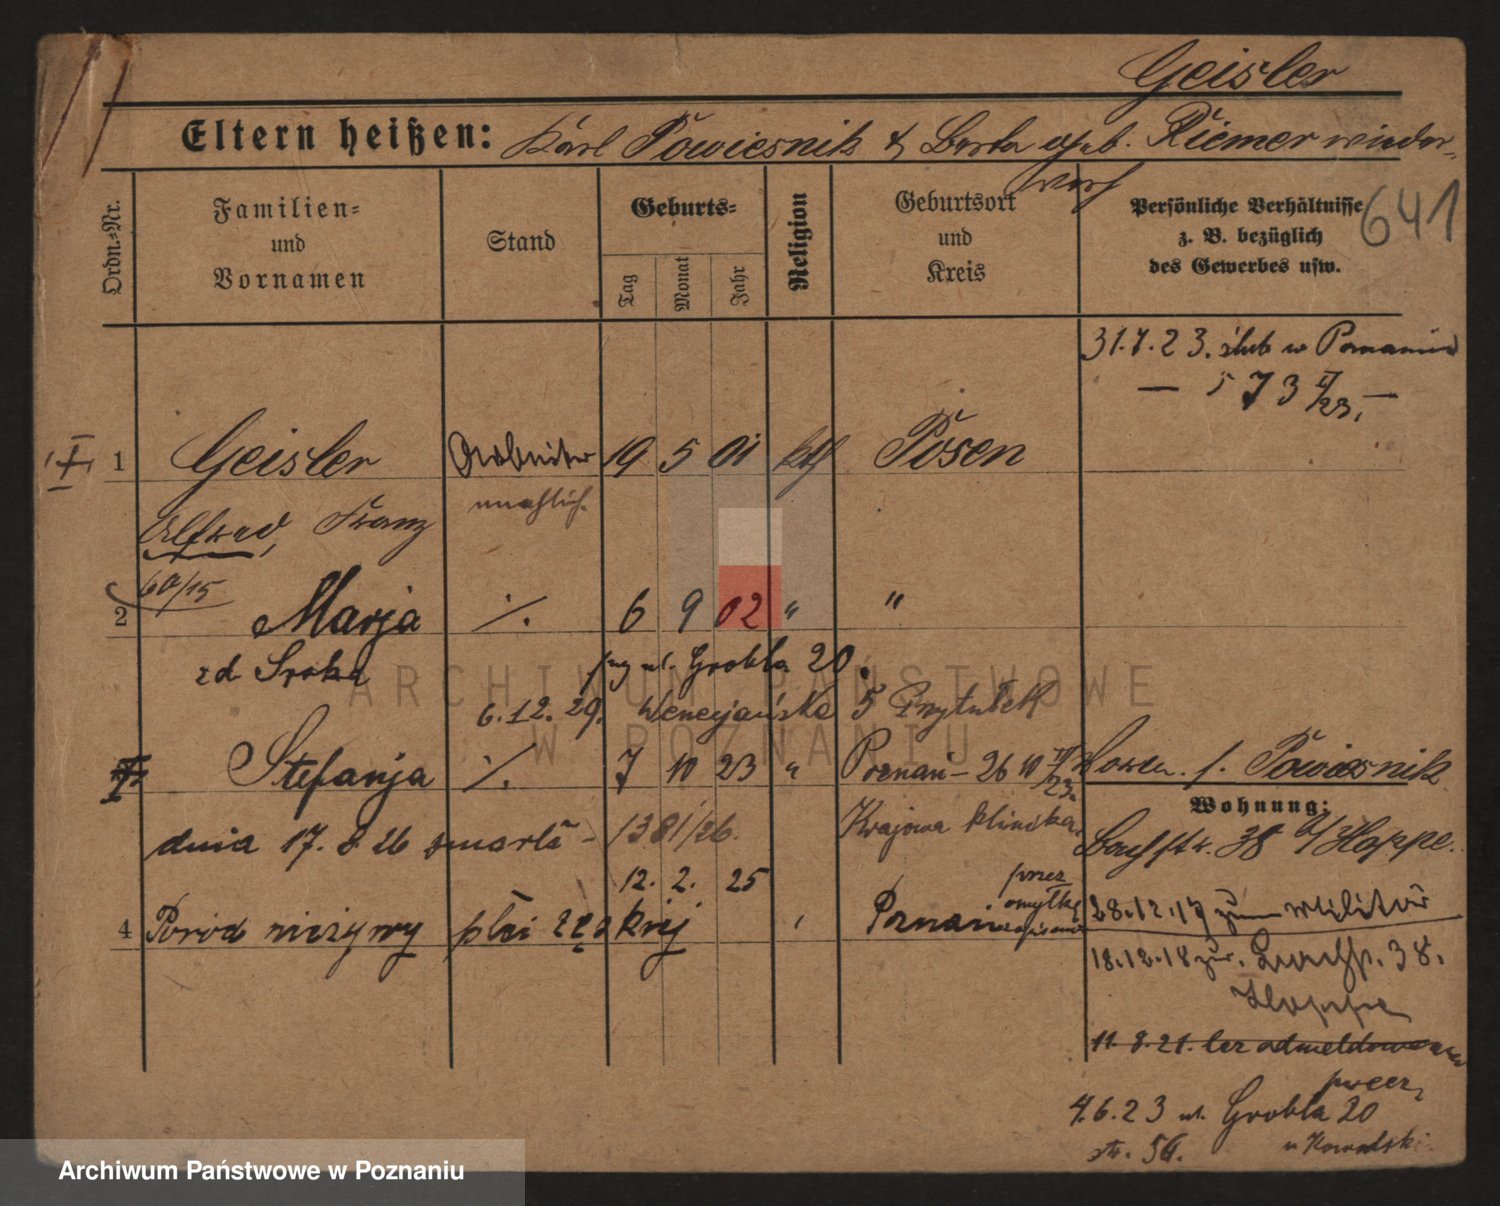 Geisler
Eltern heißen: Karl Powiesnik & Berta geb. Riemer wieder-
641
Ordn.-Nr.
Familien-
und
Vornamen
Stand
Geburts-
Tag
Monat
Jahr
Religion
Geburtsort
und
Kreis
Persönliche Verhältnisse
z. B. bezüglich
des Gewerbes usw.
31.7.23. ślub w Poznaniu
— 573 V/23. —
I
1 Geisler Arbeiter 19 5 01 kth Posen
unehlich.
Alfred, Franz
60/15
2 Marja ./. 6 9 02 " "
zd Sroka
przy ul. Grobla 20.
6.12.29. Wenecjańska 5 Przytułek
Stefanja ./. 7 10 23 " Poznań – 26 10
23.
dnia 17. 8 26 zmarła – 1381/26.
Krajowa klinika
12. 2. 25
4 Poród nieżywy płci żeńskiej Poznań
przez
omyłkę
zapisano
f. Powiesnik
Wohnung:
Bachstr. 38 b/ Hoppe.
28.12.17 zum Militär
18.12.18 zur. Bachstr. 38.
Hoppe
11. 8. 21. bez odmeldowania
precz,
4.6.23 ul. Grobla 20
str. 56. u Kowalski
ARCHIWUM PAŃSTWOWE
W POZNANIU
Archiwum Państwowe w Poznaniu